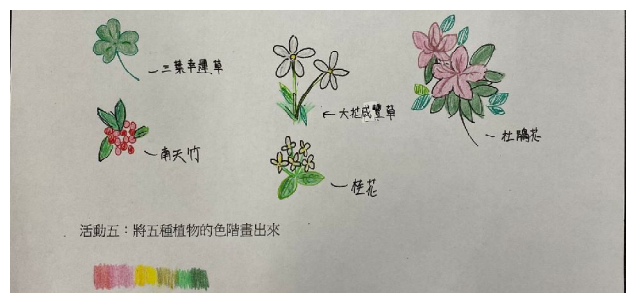 三葉幸運草
大花咸豐草
杜鵑花
南天竹
桂花
活動五：將五種植物的色階畫出來